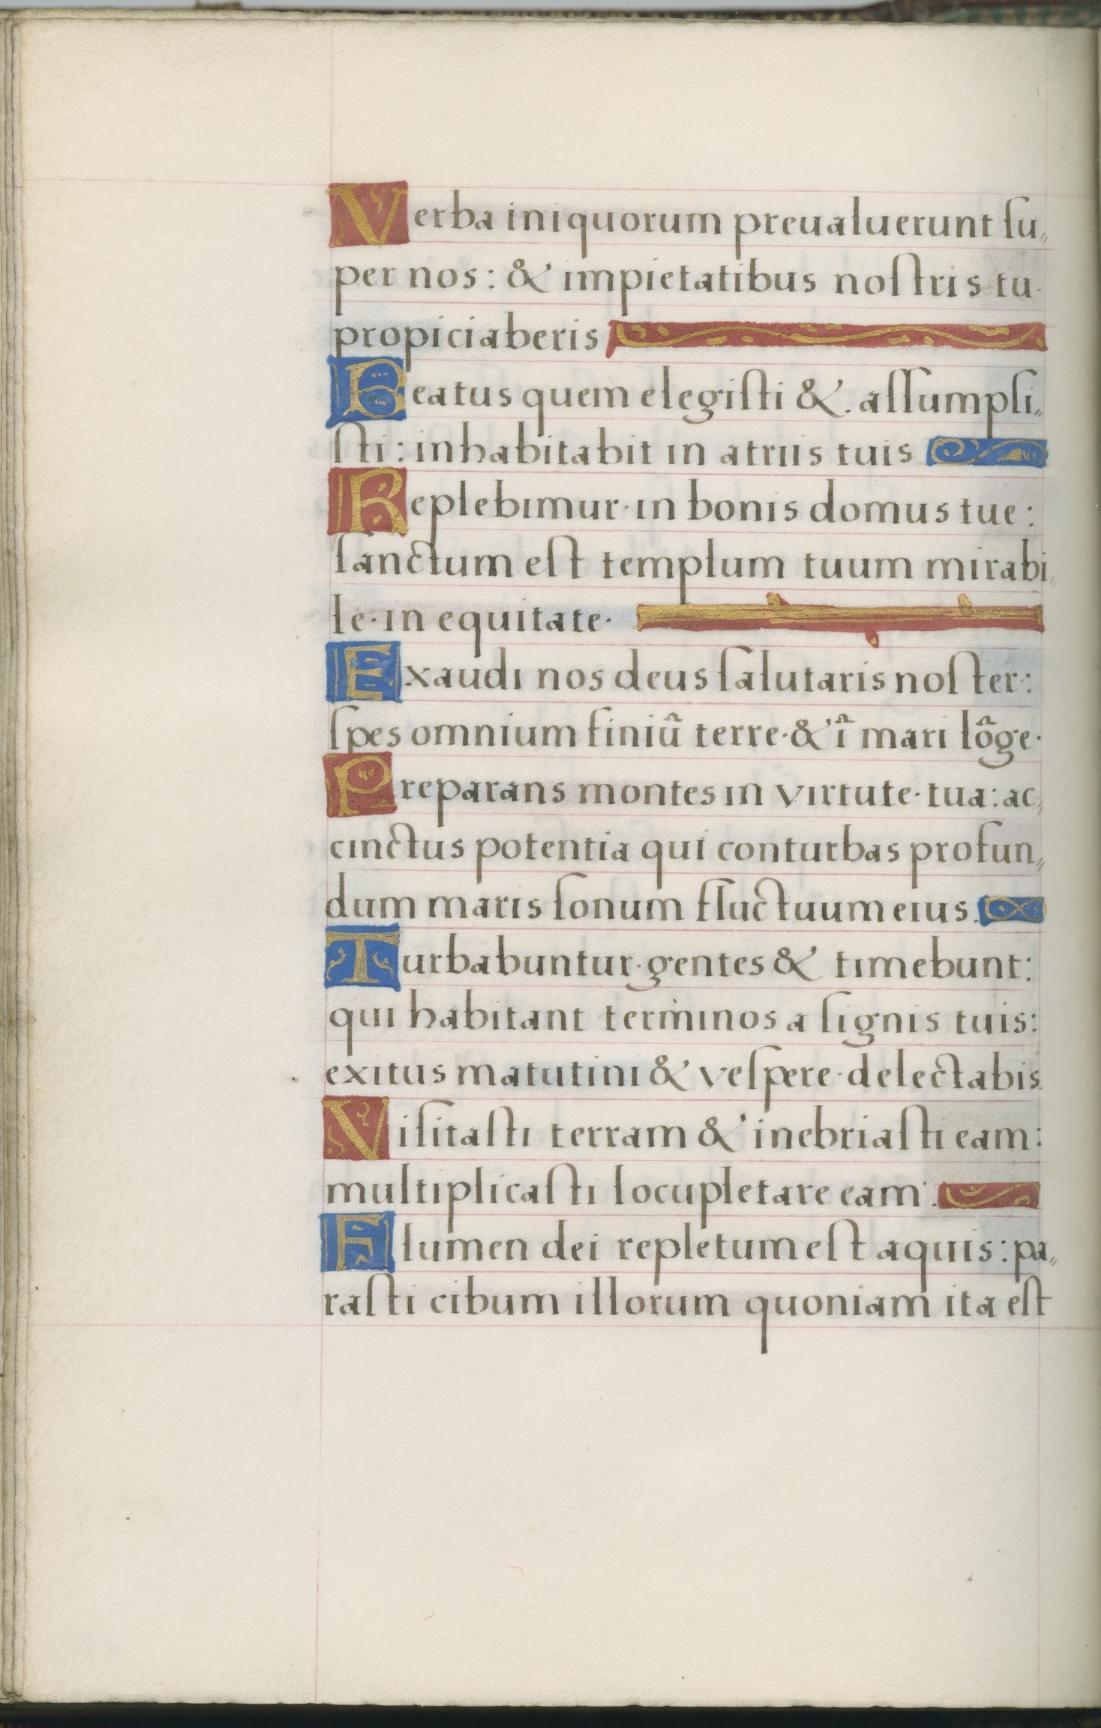 Verba iniquorum preualuerunt ſu„
per nos: & impietatibus noſtris tu
propiciaberis
Beatus quem elegiſti &. aſſumpſi„
ſti: inhabitabit in atriis tuis
Replebimur·in bonis domus tue:
ſanctum eſt templum tuum mirabi„
le·in equitate·
Exaudi nos deus ſalutaris noſter:
ſpes omnium finiũ terre·& ĩ mari lõge·
Preparans montes in virtute·tua: ac„
cinctus potentia qui conturbas profun„
dum maris ſonum fluctuum eius.
Turbabuntur·gentes & timebunt:
qui habitant terminos a ſignis tuis:
exitus matutini & veſpere·delectabis
Viſitaſti terram & inebriaſti eam:
multiplicaſti locupletare eam.
Flumen dei repletum eſt aquis: pa„
raſti cibum illorum quoniam ita eſt